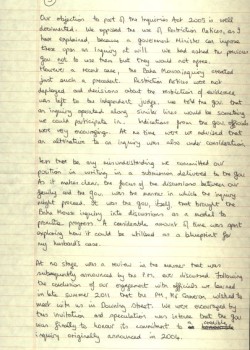 Our objection to part of the Inquiries Act 2005 is well
documented. We opposed the use of Restriction Notices, as I
have explained, because a government Minister can impose
these upon an Inquiry at will. We had asked the previous
Gov. not to use them but they would not agree.
However a recent case, the Baha Mousa inquiry created
just such a precedent. Restriction Notices were not
deployed and decisions about the restriction of evidence
was left to the independent judge. We told the Gov that
an inquiry operated along similar lines would be something
we could participate in. Indications from the Gov officials
were very encouraging. At no time were we advised that
an alternative to an inquiry was also under consideration.
Less there be any misunderstanding we committed our
position in writing in a submission delivered to the Gov.
As it makes clear, the focus of the discussions between our
family and the Gov. was the manner in which the inquiry
might proceed. It was the Gov, itself, that brought the
Baha Mousa inquiry into discussions as a model to
possible progress. A considerable amount of time was spent
exploring how it could be utilised as a blueprint for
my husband's case.
At no stage was a review in the manner that was
subsequently announced by the P.M. ever discussed. Following
the conclusion of our engagement with officials we learned
in late summer 2011 that the PM, Mr Cameron, wished to
meet with us in Downing Street. We were encouraged by
this invitation and speculation was intense that the Gov
was finally to honour its commitment to a
inquiry originally announced in 2004.